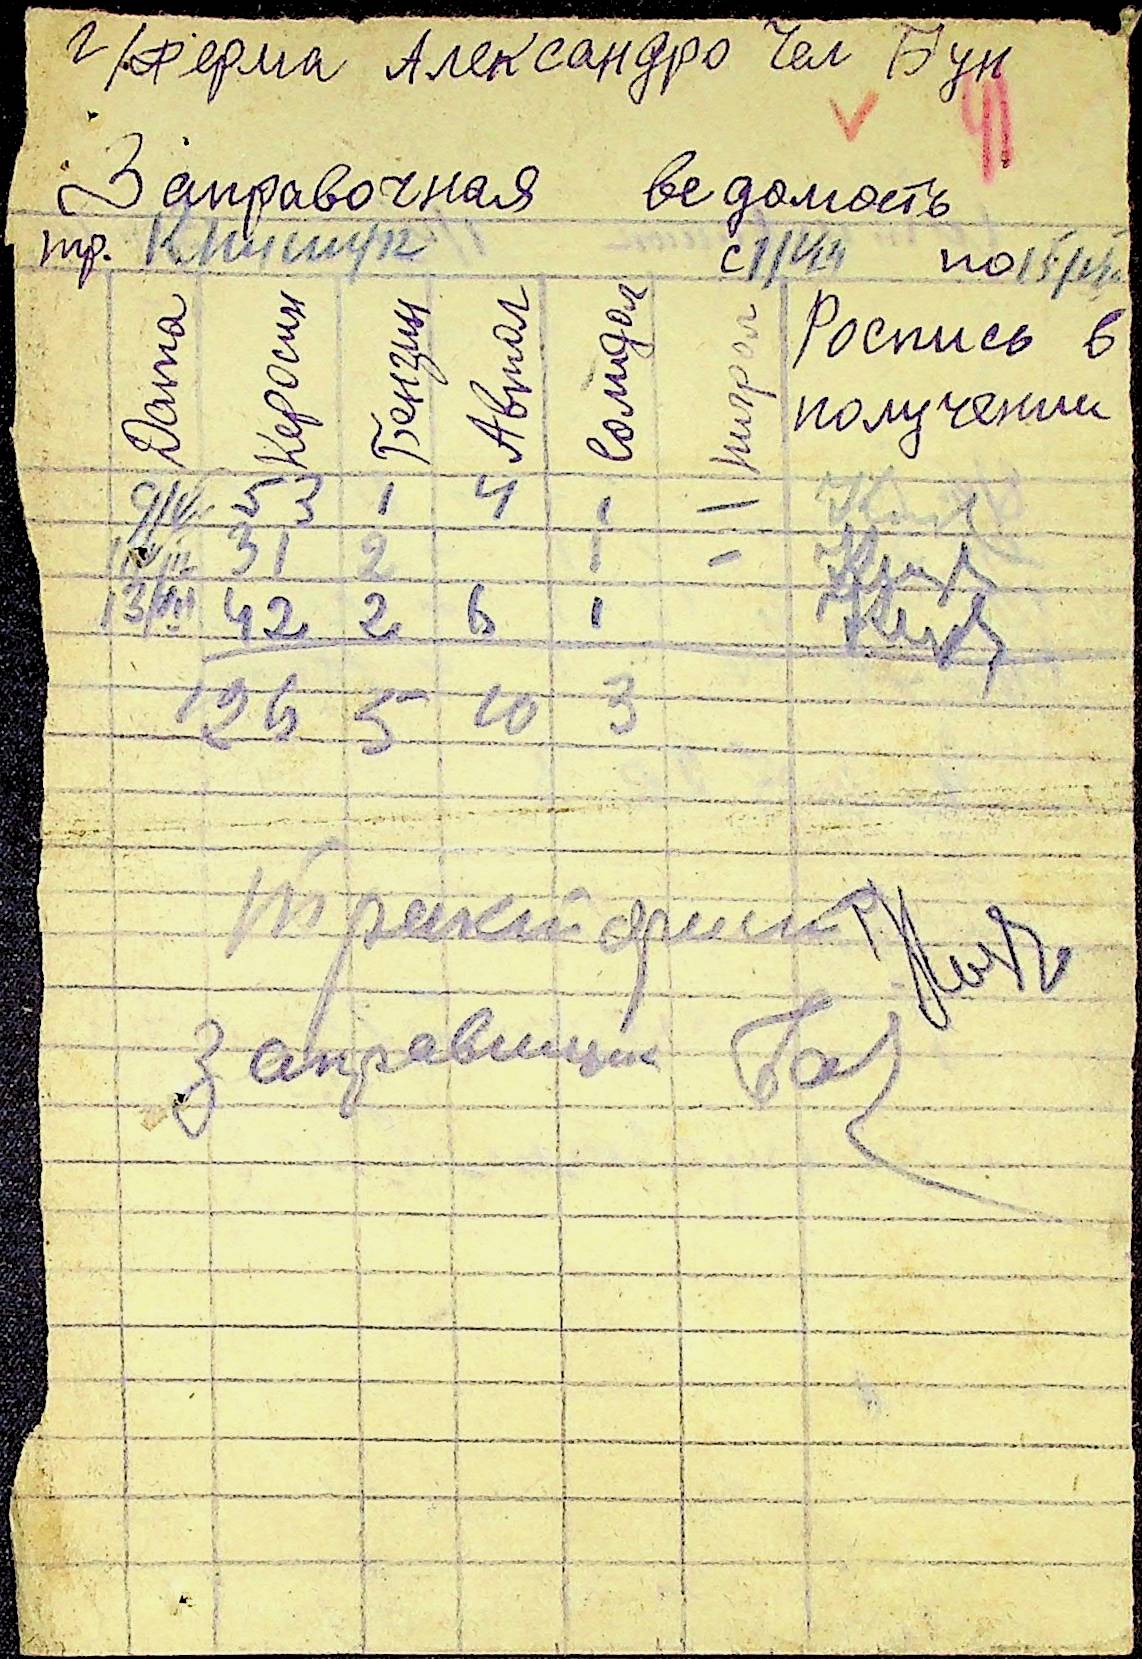 г/ферма Александро Чел Бун
41
Заправочная ведомость
тр. с 1/ по 15/
Дата Керосин Бензин Автол Солидол Нигрол Роспись в получении
9/ 53 1 4 1 —
31 2 1 —
13/ 42 2 6 1
126 5 10 3
Тракторист
Заправщик